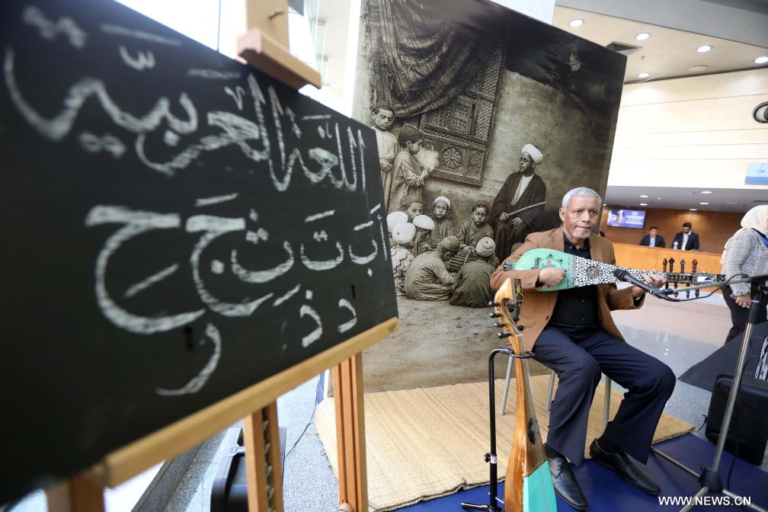 اللغة العربيّة
أَ بَ تَ ث جَ ح
د ذ ر
WWW.NEWS.CN